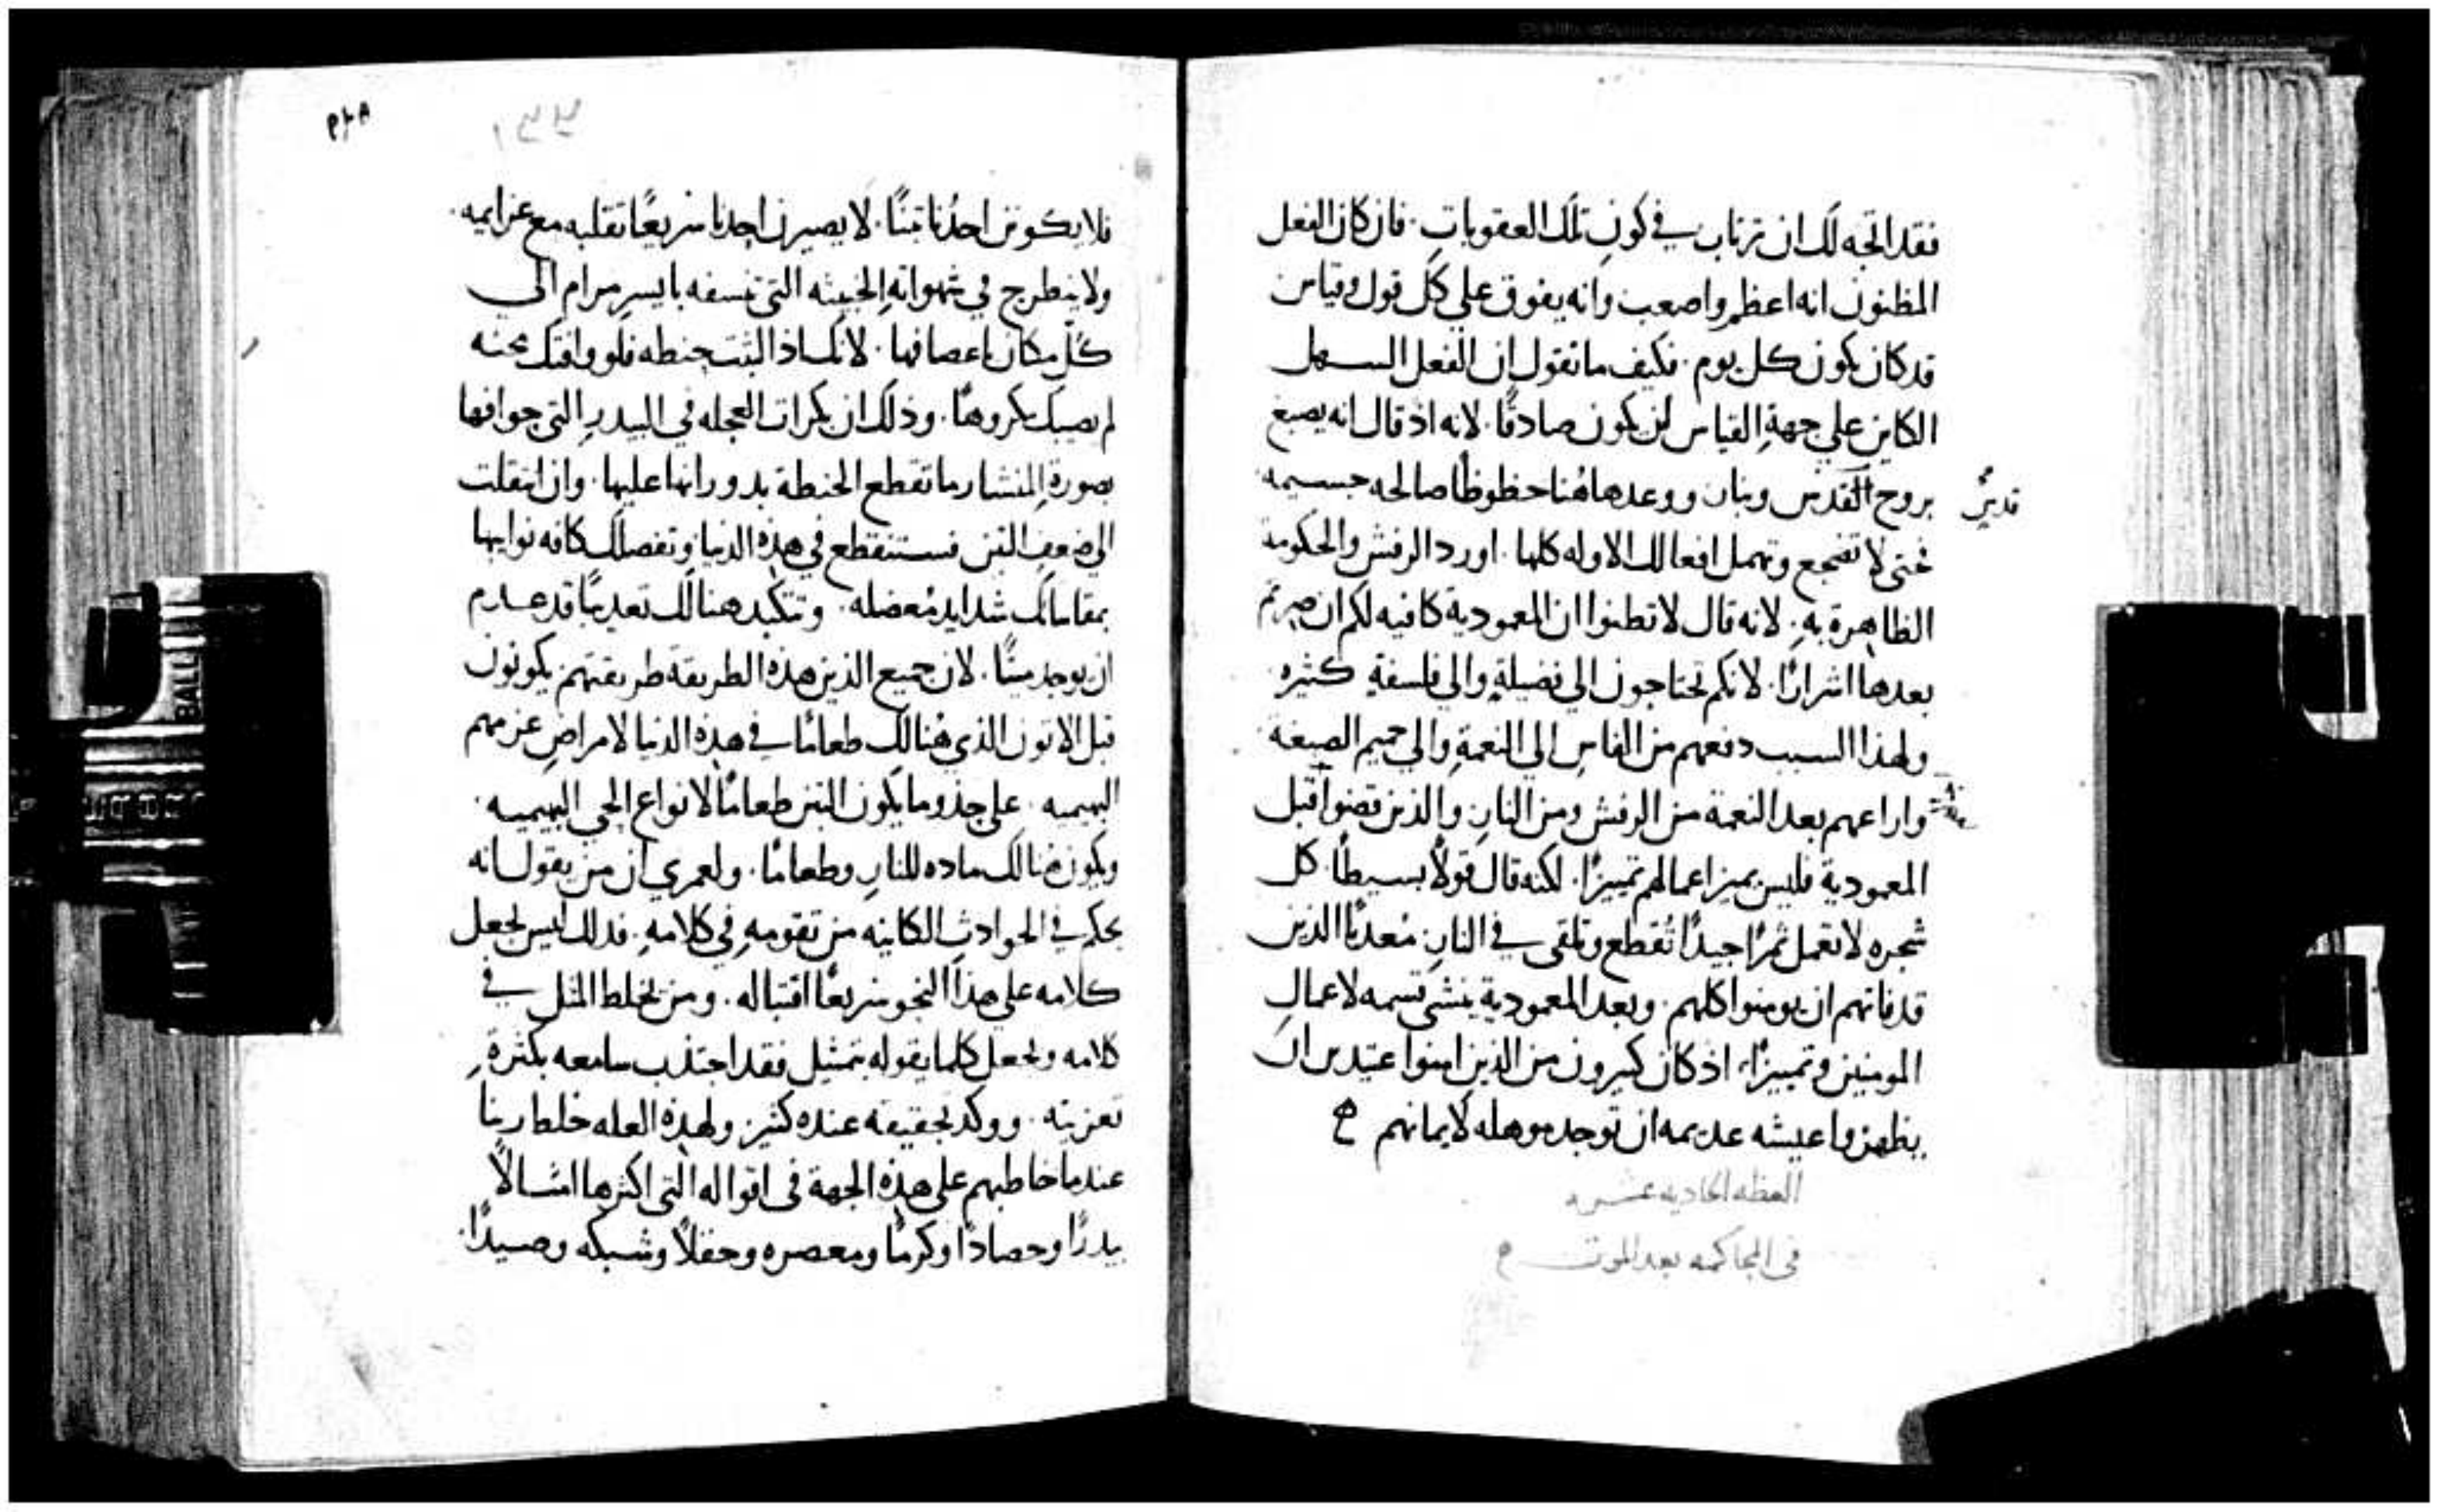 فقد اتجه لك ان ترتاب في كون تلك العقوبات. فان كان الفعل
المظنون انه اعظم واصعب وانه يفوق علي كل قول وقياس
قد كان يكون كل يوم. فكيف ما تقول ان الفعل السهل
الكاين علي جهة القياس لن يكون صادقًا. لانه اذ قال انه يصبغ
بروح القدس وبنار ووعدها هُنا حظوظًا صالحه جسيمه
فحتي لا تضجع وتهمل افعالك الاوله كلها. اورد الرفش والحكومة
الظاهرة به. لانه قال لا تظنوا ان المعمودية كافيه لكم ان صرتم
بعدها اشرارًا. لانكم تحتاجون الي فضيلةٍ والي فلسفةٍ كثيره
ولهذا السبب دفعهم من الفاس الي النعمةِ والي حميم الصبغه
واراعهم بعد النعمة من الرفش ومن النارِ والذين قضوا قبل
المعمودية فليس يميز اعمالهم تمييزًا. لكنه قال قولاً بسيطًا. كل
شجره لا تعمل ثمرًا جيدًا تُقطع وتلقي في النارِ مُعذبًا الذين
قد فاتهم ان يومنوا كلهم. وبعد المعمودية ينشي قسمه لاعمالِ
المومنين وتمييزًا. اذ كان كثيرون من الذين امنوا عتيدين ان
يظهروا عيشه عديمه ان توجد موهله لايمانهم
العظه الحاديه عشره
في المحاكمه بعد الموت
٩٢٨
١٣٣
فلا يكونن احدُنا تبنًا. لا يصيرن احدنا سريعًا تقلبه مع عزايمه.
ولا ينطرح في شهواته الخبيثه التي تنسفه بايسر مرام الي
كل مكان باعصافها. لانك اذ البثت حنطه فلو وافتك محنه
لم يصبك مكروهًا. وذلك ان بكرات العجله في البيدرِ التي حوافها
بصورةِ المنشار ما تقطع الحنطة بدورانها عليها. وان انتقلت
الي ضعف التبن فستنقطع في هذه الدنيا وتفصلك كافه نوايبها
بمقاساتك شدايد مُعضله. وتتكبد هنالك تعذيبًا قد عدم
ان يوجد ميتًا. لان جميع الذين هذه الطريقة طريقتهم يكونون
قبل الاتون الذي هُنالك طعامًا في هذه الدنيا لامراض عزمهم
البهيميه. علي حذو ما يكون التبن طعامًا لانواع الحي البهيميه.
ويكون هنالك ماده للنارِ وطعامًا. ولعمري ان من يقول انه
يحكم في الحوادث الكاينه من تقومه في كلامهِ. فذلك ليس يجعل
كلامه علي هذا النحو سريعًا اقتباله. ومن يخلط المثل في
كلامه ويجعل كلما يقوله بتمثيل فقد اجتذب سامعه بكثرةِ
تعزيته. ووكد تحقيقه عنده كثيرًا ولهذه العله خلط ربنا
عندما خاطبهم علي هذه الجهة في اقواله التي اكثرها امثالاً
بيدرًا وحصادًا وكرمًا ومعصره وحقلاً وشبكه وصيدًا.